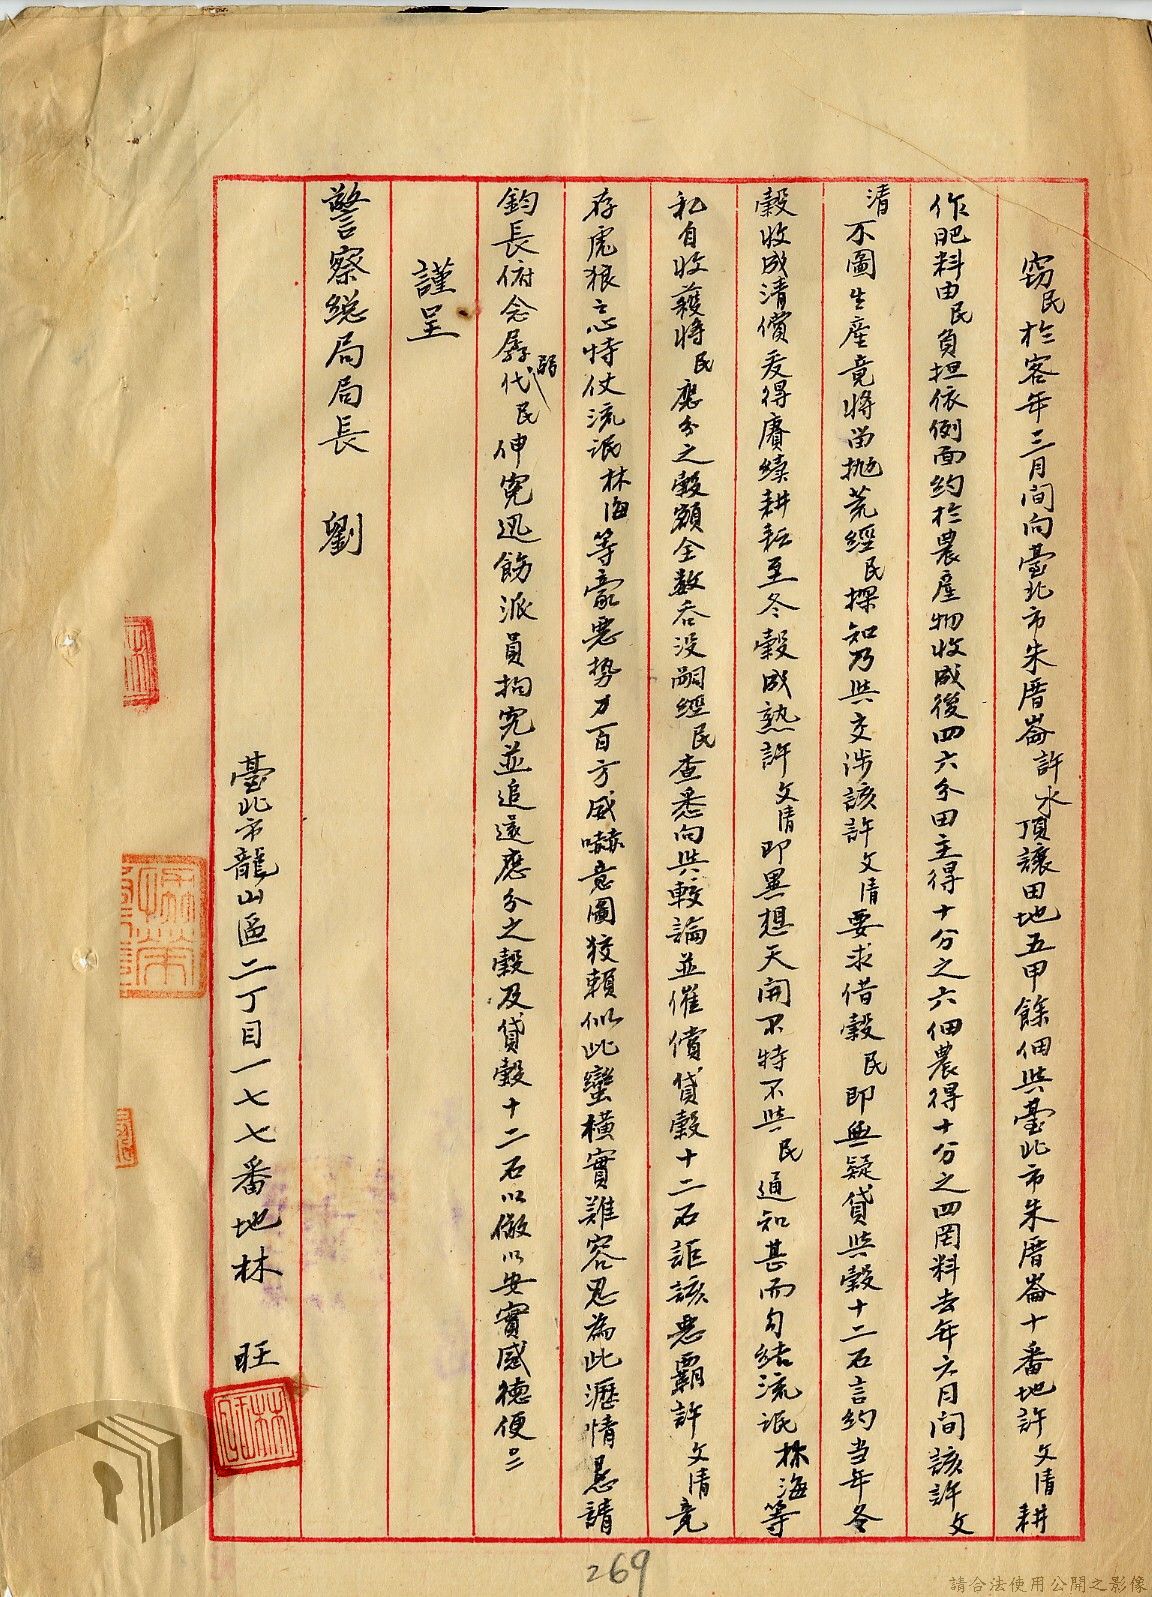 竊民於客年三月間向臺北市朱厝崙許水頂讓田地五甲餘佃與臺北市朱厝崙十番地許文清耕
作肥料由民負担依例面約於農產物收成後四六分田主得十分之六佃農得十分之四罔料去年六月間該許文
清不圖生產竟將田拋荒經民探知乃與交涉該許文清要求借穀民即無疑貸與穀十二石言約当年冬
穀收成清償爰得賡續耕耘至冬穀成熟許文清即異想天開不特不與民通知甚而勾結流氓林海等
私自收穫將民應分之穀額全数吞没嗣經民查悉向與較論並催償貸穀十二石詎該惡霸許文清竟
存虎狼之心恃仗流氓林海等豪惡势力百方威嚇意圖狡賴似此蠻橫實難容忍為此瀝情恳請
鈞長俯念孱弱代民伸寃迅飭派員拘究並追還應分之穀及貸穀十二石以儆以安實感德便
謹呈
警察総局局長 劉
臺北市龍山區二丁目一七七番地林 旺
269
請合法使用公開之影像